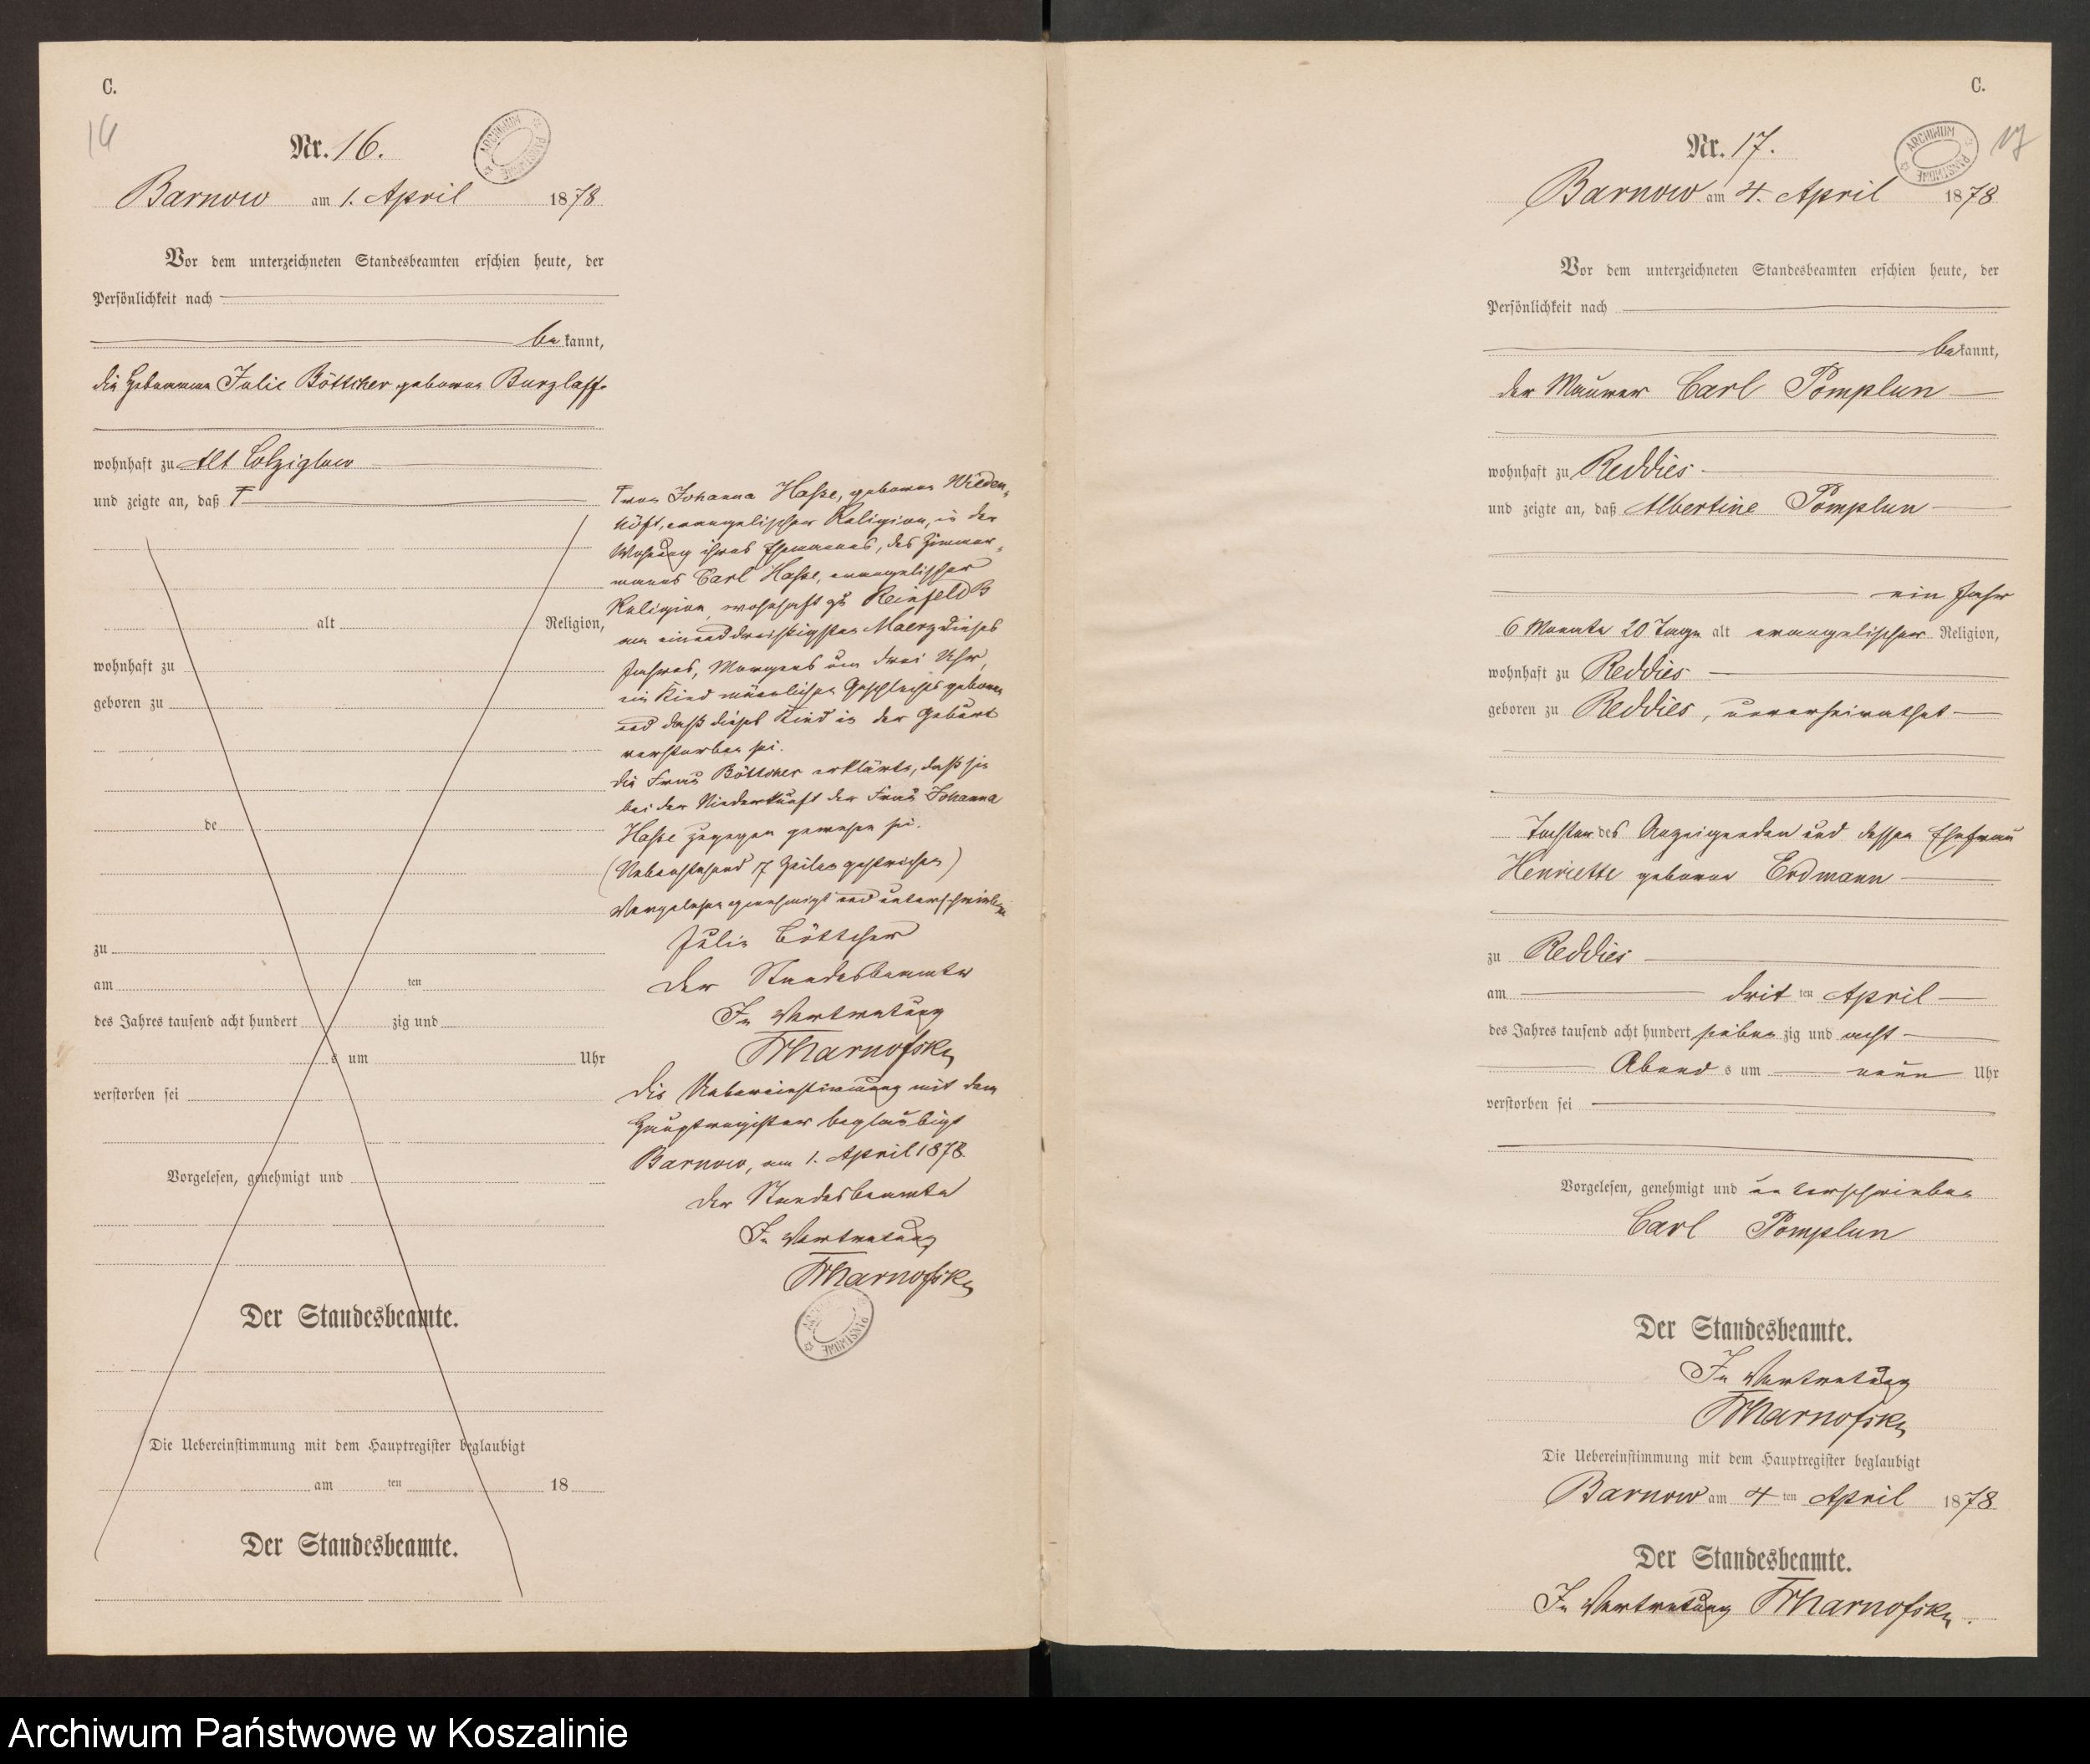 C.
16
Nr. 16.
ARCHIWUM PAŃSTWOWE
Barnow am 1. April 1878
Vor dem unterzeichneten Standesbeamten erschien heute, der
Persönlichkeit nach
bekannt,
die Hebamme Julie Böttcher geborne Burzlaff
wohnhaft zu Alt Colziglow
und zeigte an, daß
alt Religion,
wohnhaft zu
geboren zu
de
zu
am ten
des Jahres tausend acht hundert zig und
s um Uhr
verstorben sei
Vorgelesen, genehmigt und
Der Standesbeamte.
Die Uebereinstimmung mit dem Hauptregister beglaubigt
am ten 18
Der Standesbeamte.
Johanna Haße, geborne Wieden-
höft, evangelischer Religion, in der
Wohnung ihres Ehemannes, des Zimmer-
manns Carl Haße, evangelischer
Religion, wohnhaft zu Reinfeld B
am einunddreißigsten Maerz dieses
Jahres, Morgens um drei Uhr,
ein Kind männlichen Geschlechts geboren
und daß dieses Kind in der Geburt
verstorben sei.
Die Frau Böttcher erklärte, daß sie
bei der Niederkunft der Frau Johanna
Haße zugegen gewesen sei.
(Nebenstehend 17 Zeilen gestrichen)
Vorgelesen genehmigt und unterschrieben
Julie Böttcher
Der Standesbeamte
In Vertretung
Die Uebereinstimmung mit dem
Hauptregister beglaubigt
Barnow, am 1. April 1878.
Der Standesbeamte
In Vertretung
ARCHIWUM PAŃSTWOWE
C.
17
Nr. 17.
ARCHIWUM PAŃSTWOWE
Barnow am 4. April 1878
Vor dem unterzeichneten Standesbeamten erschien heute, der
Persönlichkeit nach
bekannt,
der Maurer Carl Pomplun
wohnhaft zu Reddies
und zeigte an, daß Albertine Pomplun
ein Jahr
6 Monate 20 Tage alt evangelischer Religion,
wohnhaft zu Reddies
geboren zu Reddies, unverheirathet
Tochter des Anzeigenden und dessen Ehefrau
Henriette geborne Erdmann
zu Reddies
am dritten April
des Jahres tausend acht hundert siebenzig und acht
Abends um neun Uhr
verstorben sei
Vorgelesen, genehmigt und unterschrieben
Carl Pomplun
Der Standesbeamte.
In Vertretung
Die Uebereinstimmung mit dem Hauptregister beglaubigt
Barnow am 4ten April 1878
Der Standesbeamte.
In Vertretung
Archiwum Państwowe w Koszalinie